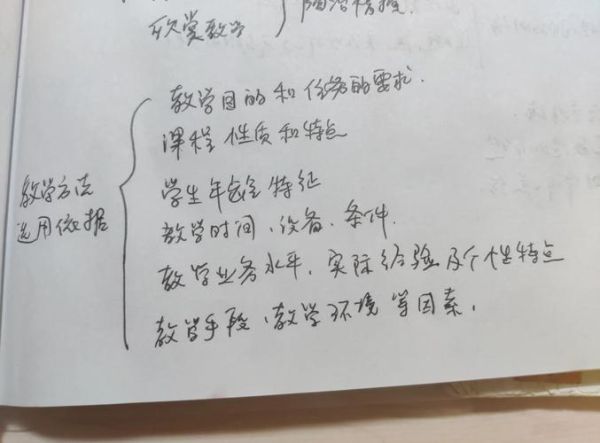 欣赏教学
陶冶情操.
教学方法
选用依据
教学目的和任务的要求.
课程性质和特点
学生年龄特征
教学时间、设备、条件.
教学业务水平、实际经验及个性特点
教学手段、教学环境等因素.